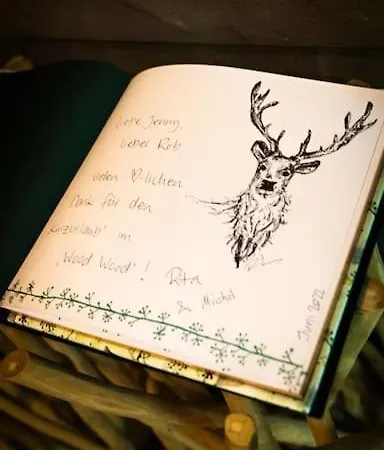 Liebe Jenny
lieber Rob,
vielen ♡-lichen
Dank für den
„Kurzurlaub“ im
„Wood Wood“!
Rita
& Michel
Juni 2022